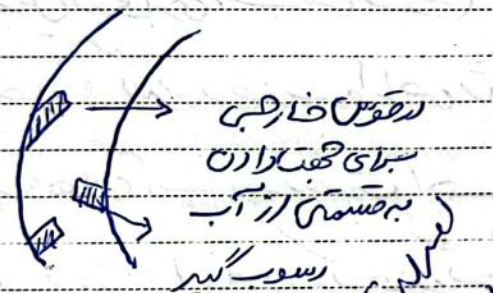 در قوس خارجی
برای جهت دادن
به قسمتی از آب
رسوب گیر